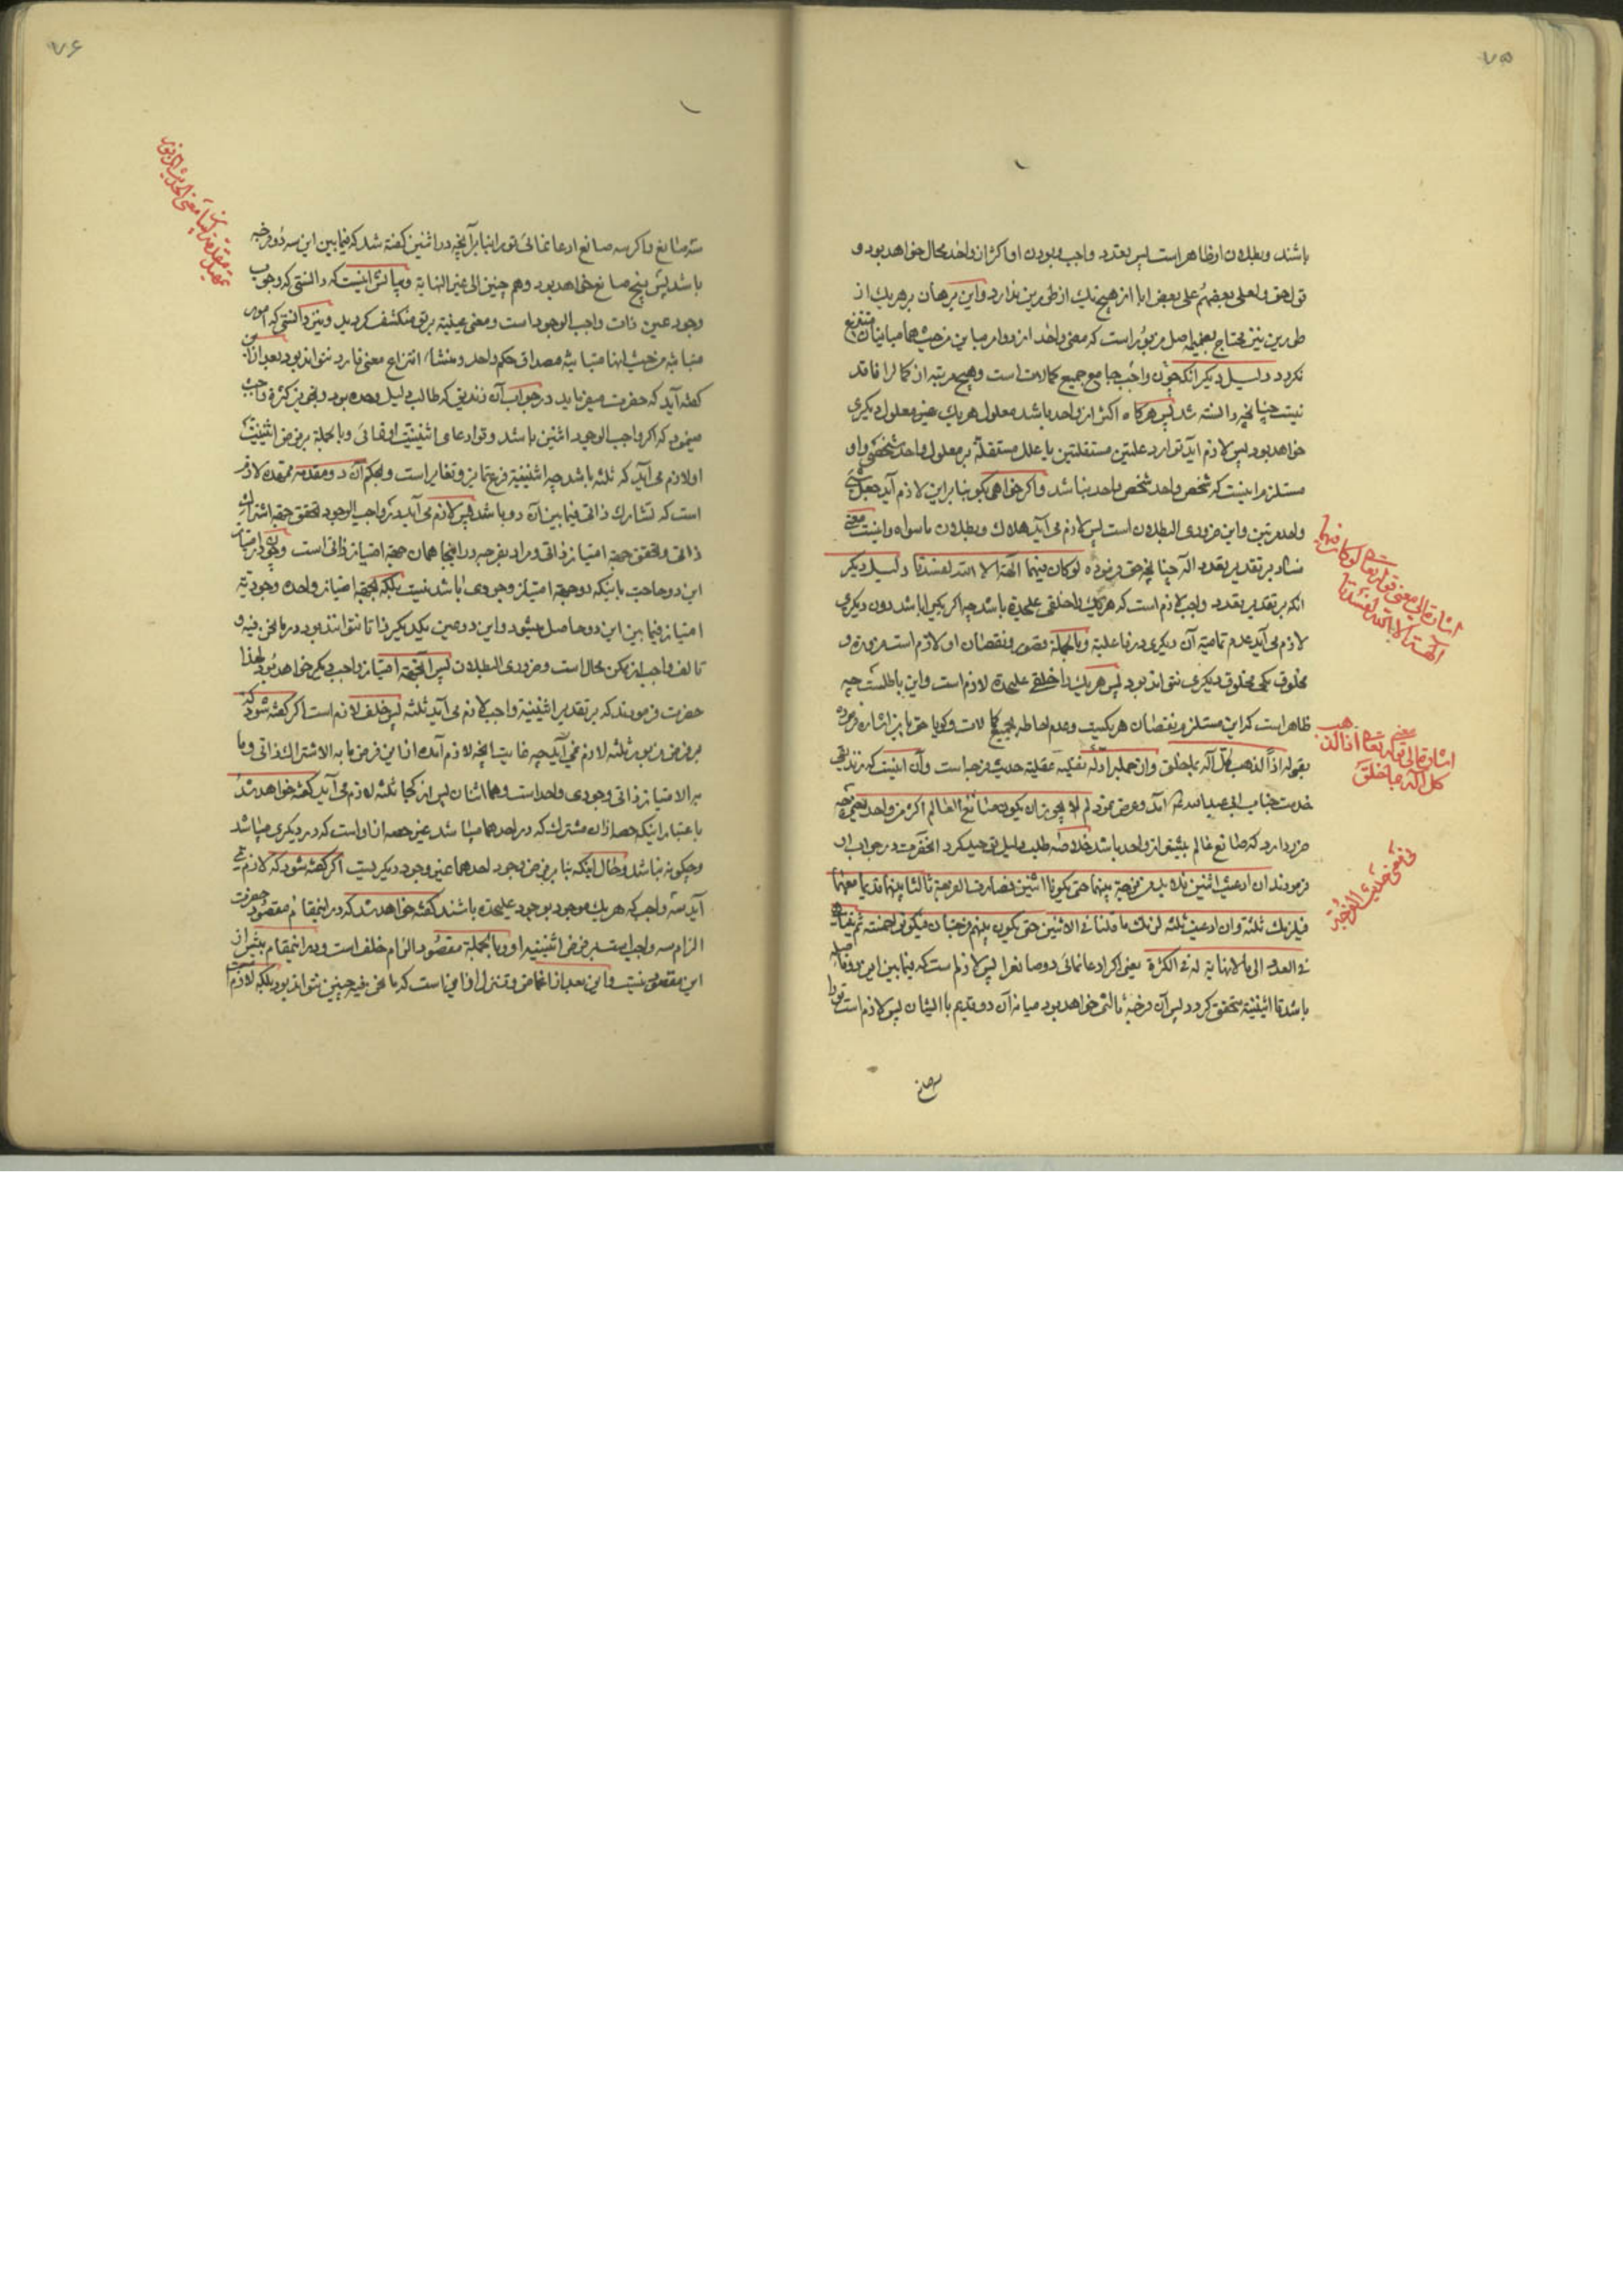 ۷۵
باشند و بطلان او ظاهر است پس تعدد واجب و بودن او اکثر از واحد محال خواهد بود و
قولهم و لعلی بعضهم علی بعض ابا از هیچ یک از طورین ندارد و این برهان بر هر یک از
طورین نیز محتاج بضمیمه اصل مزبور است که معنی واحد از دو امر مباین من حیث هما مباینان منتزع
نکردد دلیل دیکر انکه چون واجب جامع جمیع کمالات است و هیچ مرتبه از کمال را فاقد
نیست چنانچه دانسته شد پس هرکاه اکثر از واحد باشد معلول هر یک عین معلول دیکری
خواهد بود پس لازم آید توارد علتین مستقلتین یا علل مستقله بر معلول واحد شخصی و او
مستلزم اینست که شخص واحد شخص واحد نباشد و اکر خواهی بکو بنابراین لازم آید جعل شئ
واحد مرتین و این ضروری البطلان است پس لازم می آید هلاک و بطلان ماسواه و اینست معنی
فساد بر تقدیر تعدد آله چنانچه حق فرموده لو کان فیهما آلهة الا الله لفسدتا دلیل دیکر
انکه بر تقدیر تعدد واجب لازم است که هر یک را خلقی علیحده باشد چه اکر یکیرا باشد دون دیکری
لازم می آید عدم تمامیة آن دیکری در فاعلیة و بالجملة قصور و نقصان او لازم است ضرورة و
مخلوق یکی مخلوق دیکری نتواند بود پس هر یک را خلقی علیحده لازم است و این باطلست چه
ظاهر است که این مستلزم نقصان هر یکیست و عدم احاطه بجمیع کمالات و کویا حق باین اشاره فرموده
بقوله اذاً لذهب کل آله بما خلق و از جمله ادله نقلیه عقلیه حدیث فرجه است و آن اینست که زندیقی
خدمت جناب ابی عبدالله آمد و عرض نمود لم لا یجوز ان یکون صانع العالم اکثر من واحد یعنی چه
ضرر دارد که صانع عالم بیشتر از واحد باشد خلاصه طلب دلیل توحید کرد انحضرت در جواب او
فرمودند ان ادعیت اثنین فلابد من فرجة بینهما حتی یکونا اثنین فصارت الفرجة ثالثا بینهما قدیما معهما
فیلزمک ثلثة وان ادعیت ثلثة لزمک ما قلنا فی الاثنین حتی یکون بینهم فرجتان فیکونوا خمسة ثم یتناهی
فی العدد الی ما لا نهایة له فی الکثرة یعنی اکر ادعا نمائی دو صانع را پس لازم است که فیما بین این دو فاصله
باشد تا اثنینیة متحقق کردد پس آن فرجه ثالثی خواهد بود میانه آن دو قدیم با ایشان پس لازم است تو را
سه صانع
اشارة الی معنی قوله تعالی لو کان فیهما
آلهة الا الله لفسدتا
اشارة الی معنی قوله تعالی اذاً لذهب
کل اله بما خلق
فی معنی حدیث الفرجة
۷۶
سه صانع و اکر سه صانع ادعا نمائی تو را بنابر آنچه در اثنین کفته شد که فیما بین این سه دو فرجه
باشد پس پنج صانع خواهد بود و هم چنین الی غیر النهایة و بیانش اینست که دانستی که وجوب
وجود عین ذات واجب الوجود است و معنی عینیة بر تو منکشف کردید و نیز دانستی که امور
متباینه من حیث انها متباینه مصداق حکم واحد و منشاء انتزاع معنی فارد نتواند بود بعد از این
کفته آید که حضرت میفرماید در جواب آن زندیق که طالب دلیل وحده بود و تجویز کثرة واجب
مینمود که اکر واجب الوجود اثنین باشد و تو ادعای اثنینیت او نمائی و بالجملة بر فرض اثنینیت
او لازم می آید که ثلثه باشد چه اثنینیة فرع تمایز و تغایر است و بحکم آن دو مقدمه ممهده لازم
است که تشارک ذاتی فیما بین آن دو باشد پس لازم می آید در واجب الوجود تحقق جهة اشتراک
ذاتی و تحقق جهة امتیاز ذاتی و مراد بفرجه در اینجا همان جهة امتیاز ذاتی است و چون در امتیاز
این دو حاجت باینکه دو جهة امتیاز وجودی باشد نیست بلکه بجهة امتیاز واحده وجودیه
امتیاز فیما بین این دو حاصل میشود و این دو عین یکدیکر ذاتا نتوانند بود در ما نحن فیه و
تالف واجب از ممکن محال است و ضروری البطلان پس آنجهة امتیاز واجب دیکر خواهد بود لهذا
حضرت فرمودند که بر تقدیر اثنینیة واجب لازم می آید ثلثه پس خلف لازم است اکر کفته شود که
بر فرض مزبور ثلثه لازم نمی آید چه غایت آنچه لازم آمد از این فرض ما به الاشتراک ذاتی و ما
به الامتیاز ذاتی وجودی واحد است و هما اثنان پس از کجا ثلثه لازم می آید کفته خواهد شد
باعتبار اینکه حصه از آن مشترک که در احدهما میباشد غیر حصه از او است که در دیکری میباشد
و چکونه نباشد و حال اینکه بنابر فرض وجود احدهما عین وجود دیکر نیست اکر کفته شود که لازم می
آید سه واجب که هر یک موجود بوجود علیحده باشند کفته خواهد شد که در اینمقام مقصود حضرت
الزام سه واجب است بر فرض اثنینیه او و بالجملة مقصود الزام خلف است و در اینمقام بیشتر از
این مقصود نیست و این بعد از اغماض و تنزل اوفا میناست که ما نحن فیه چنین نتواند بود بلکه لازم
معنی الحدیث المزبور